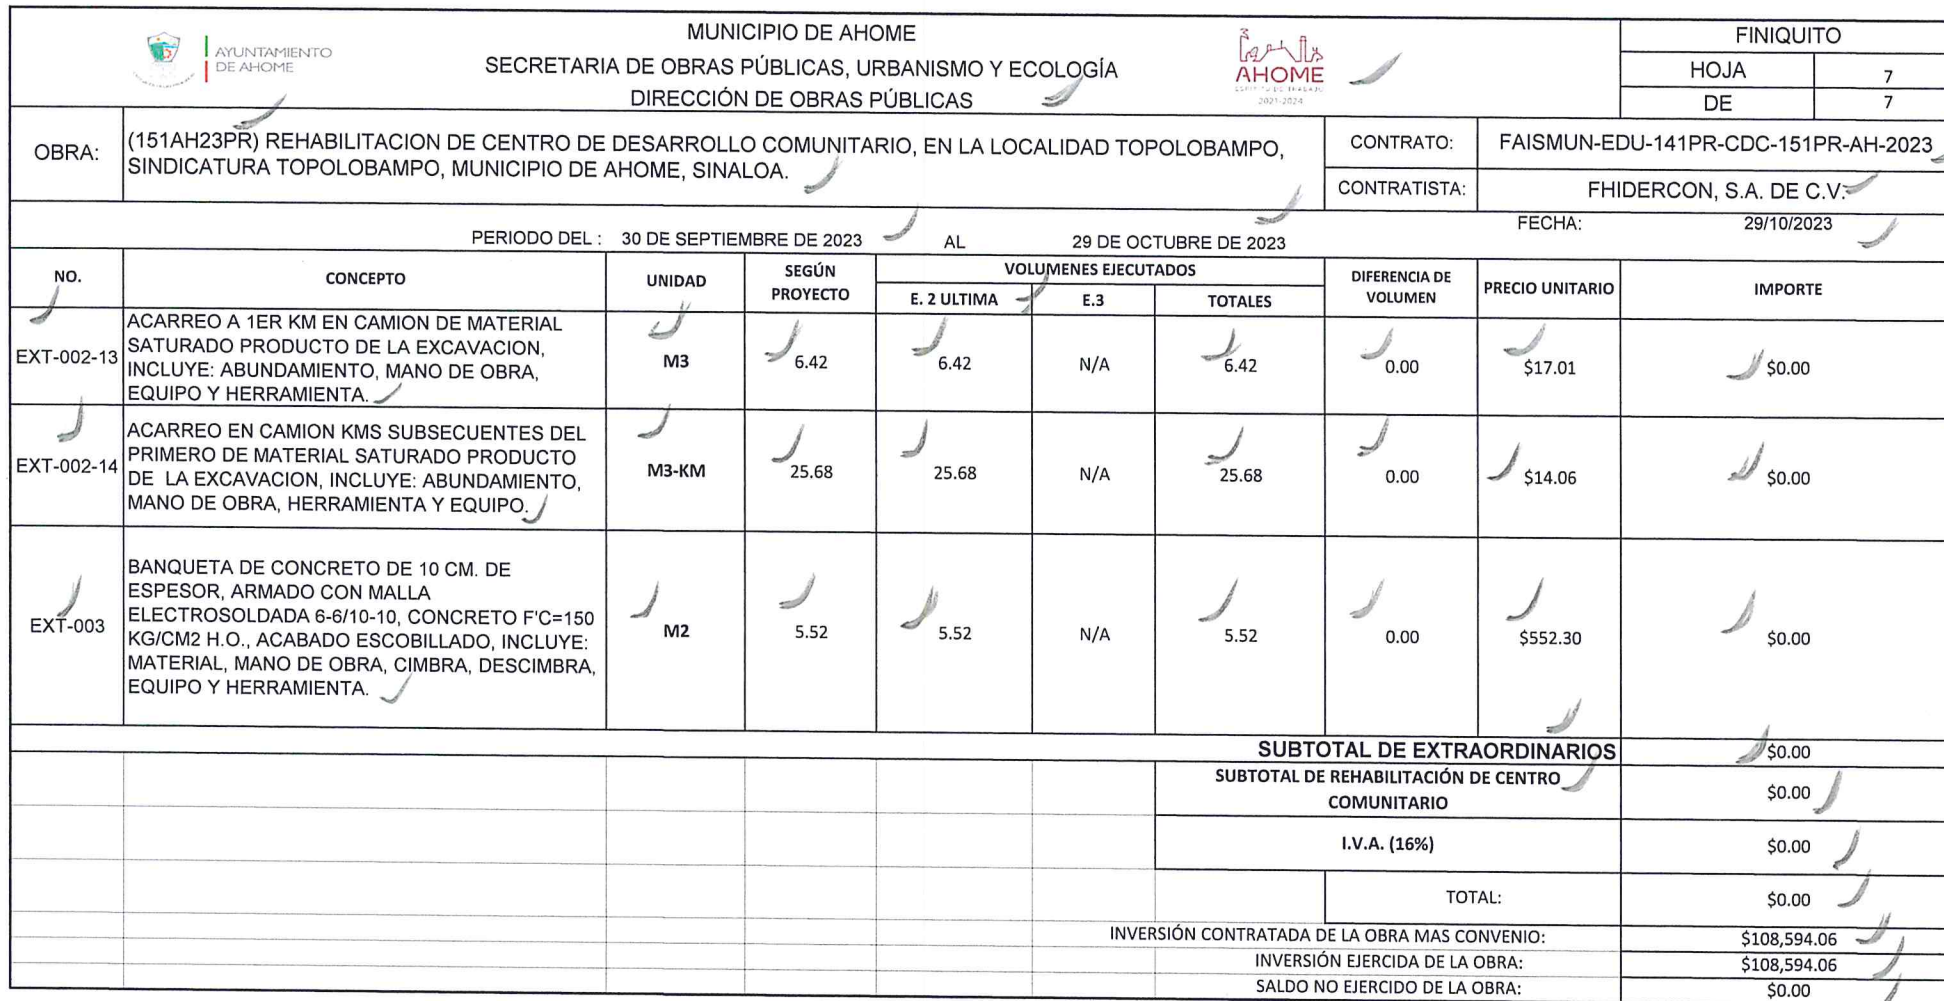 AYUNTAMIENTO
DE AHOME
MUNICIPIO DE AHOME
SECRETARIA DE OBRAS PÚBLICAS, URBANISMO Y ECOLOGÍA
DIRECCIÓN DE OBRAS PÚBLICAS
AHOME
2021-2024
FINIQUITO
HOJA 7
DE 7
OBRA:
(151AH23PR) REHABILITACION DE CENTRO DE DESARROLLO COMUNITARIO, EN LA LOCALIDAD TOPOLOBAMPO,
SINDICATURA TOPOLOBAMPO, MUNICIPIO DE AHOME, SINALOA.
CONTRATO: FAISMUN-EDU-141PR-CDC-151PR-AH-2023
CONTRATISTA: FHIDERCON, S.A. DE C.V.
PERIODO DEL : 30 DE SEPTIEMBRE DE 2023 AL 29 DE OCTUBRE DE 2023
FECHA: 29/10/2023
NO.
CONCEPTO
UNIDAD
SEGÚN
PROYECTO
VOLUMENES EJECUTADOS
E. 2 ULTIMA
E.3
TOTALES
DIFERENCIA DE
VOLUMEN
PRECIO UNITARIO
IMPORTE
EXT-002-13
ACARREO A 1ER KM EN CAMION DE MATERIAL
SATURADO PRODUCTO DE LA EXCAVACION,
INCLUYE: ABUNDAMIENTO, MANO DE OBRA,
EQUIPO Y HERRAMIENTA.
M3 6.42 6.42 N/A 6.42 0.00 $17.01 $0.00
EXT-002-14
ACARREO EN CAMION KMS SUBSECUENTES DEL
PRIMERO DE MATERIAL SATURADO PRODUCTO
DE LA EXCAVACION, INCLUYE: ABUNDAMIENTO,
MANO DE OBRA, HERRAMIENTA Y EQUIPO.
M3-KM 25.68 25.68 N/A 25.68 0.00 $14.06 $0.00
EXT-003
BANQUETA DE CONCRETO DE 10 CM. DE
ESPESOR, ARMADO CON MALLA
ELECTROSOLDADA 6-6/10-10, CONCRETO F'C=150
KG/CM2 H.O., ACABADO ESCOBILLADO, INCLUYE:
MATERIAL, MANO DE OBRA, CIMBRA, DESCIMBRA,
EQUIPO Y HERRAMIENTA.
M2 5.52 5.52 N/A 5.52 0.00 $552.30 $0.00
SUBTOTAL DE EXTRAORDINARIOS $0.00
SUBTOTAL DE REHABILITACIÓN DE CENTRO
COMUNITARIO
$0.00
I.V.A. (16%) $0.00
TOTAL: $0.00
INVERSIÓN CONTRATADA DE LA OBRA MAS CONVENIO: $108,594.06
INVERSIÓN EJERCIDA DE LA OBRA: $108,594.06
SALDO NO EJERCIDO DE LA OBRA: $0.00